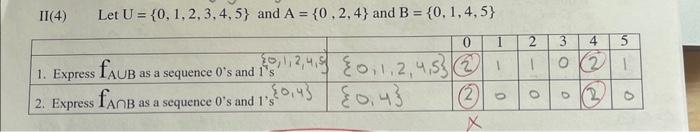 II(4) Let U = {0, 1, 2, 3, 4, 5} and A = {0 , 2, 4} and B = {0, 1, 4, 5}
0 1 2 3 4 5
{0,1,2,4,5}
1. Express fA∪B as a sequence 0's and 1's {0,1,2,4,5} 2 1 1 0 2 1
{0,4}
2. Express fA∩B as a sequence 0's and 1's {0,4} 2 0 0 0 2 0
X